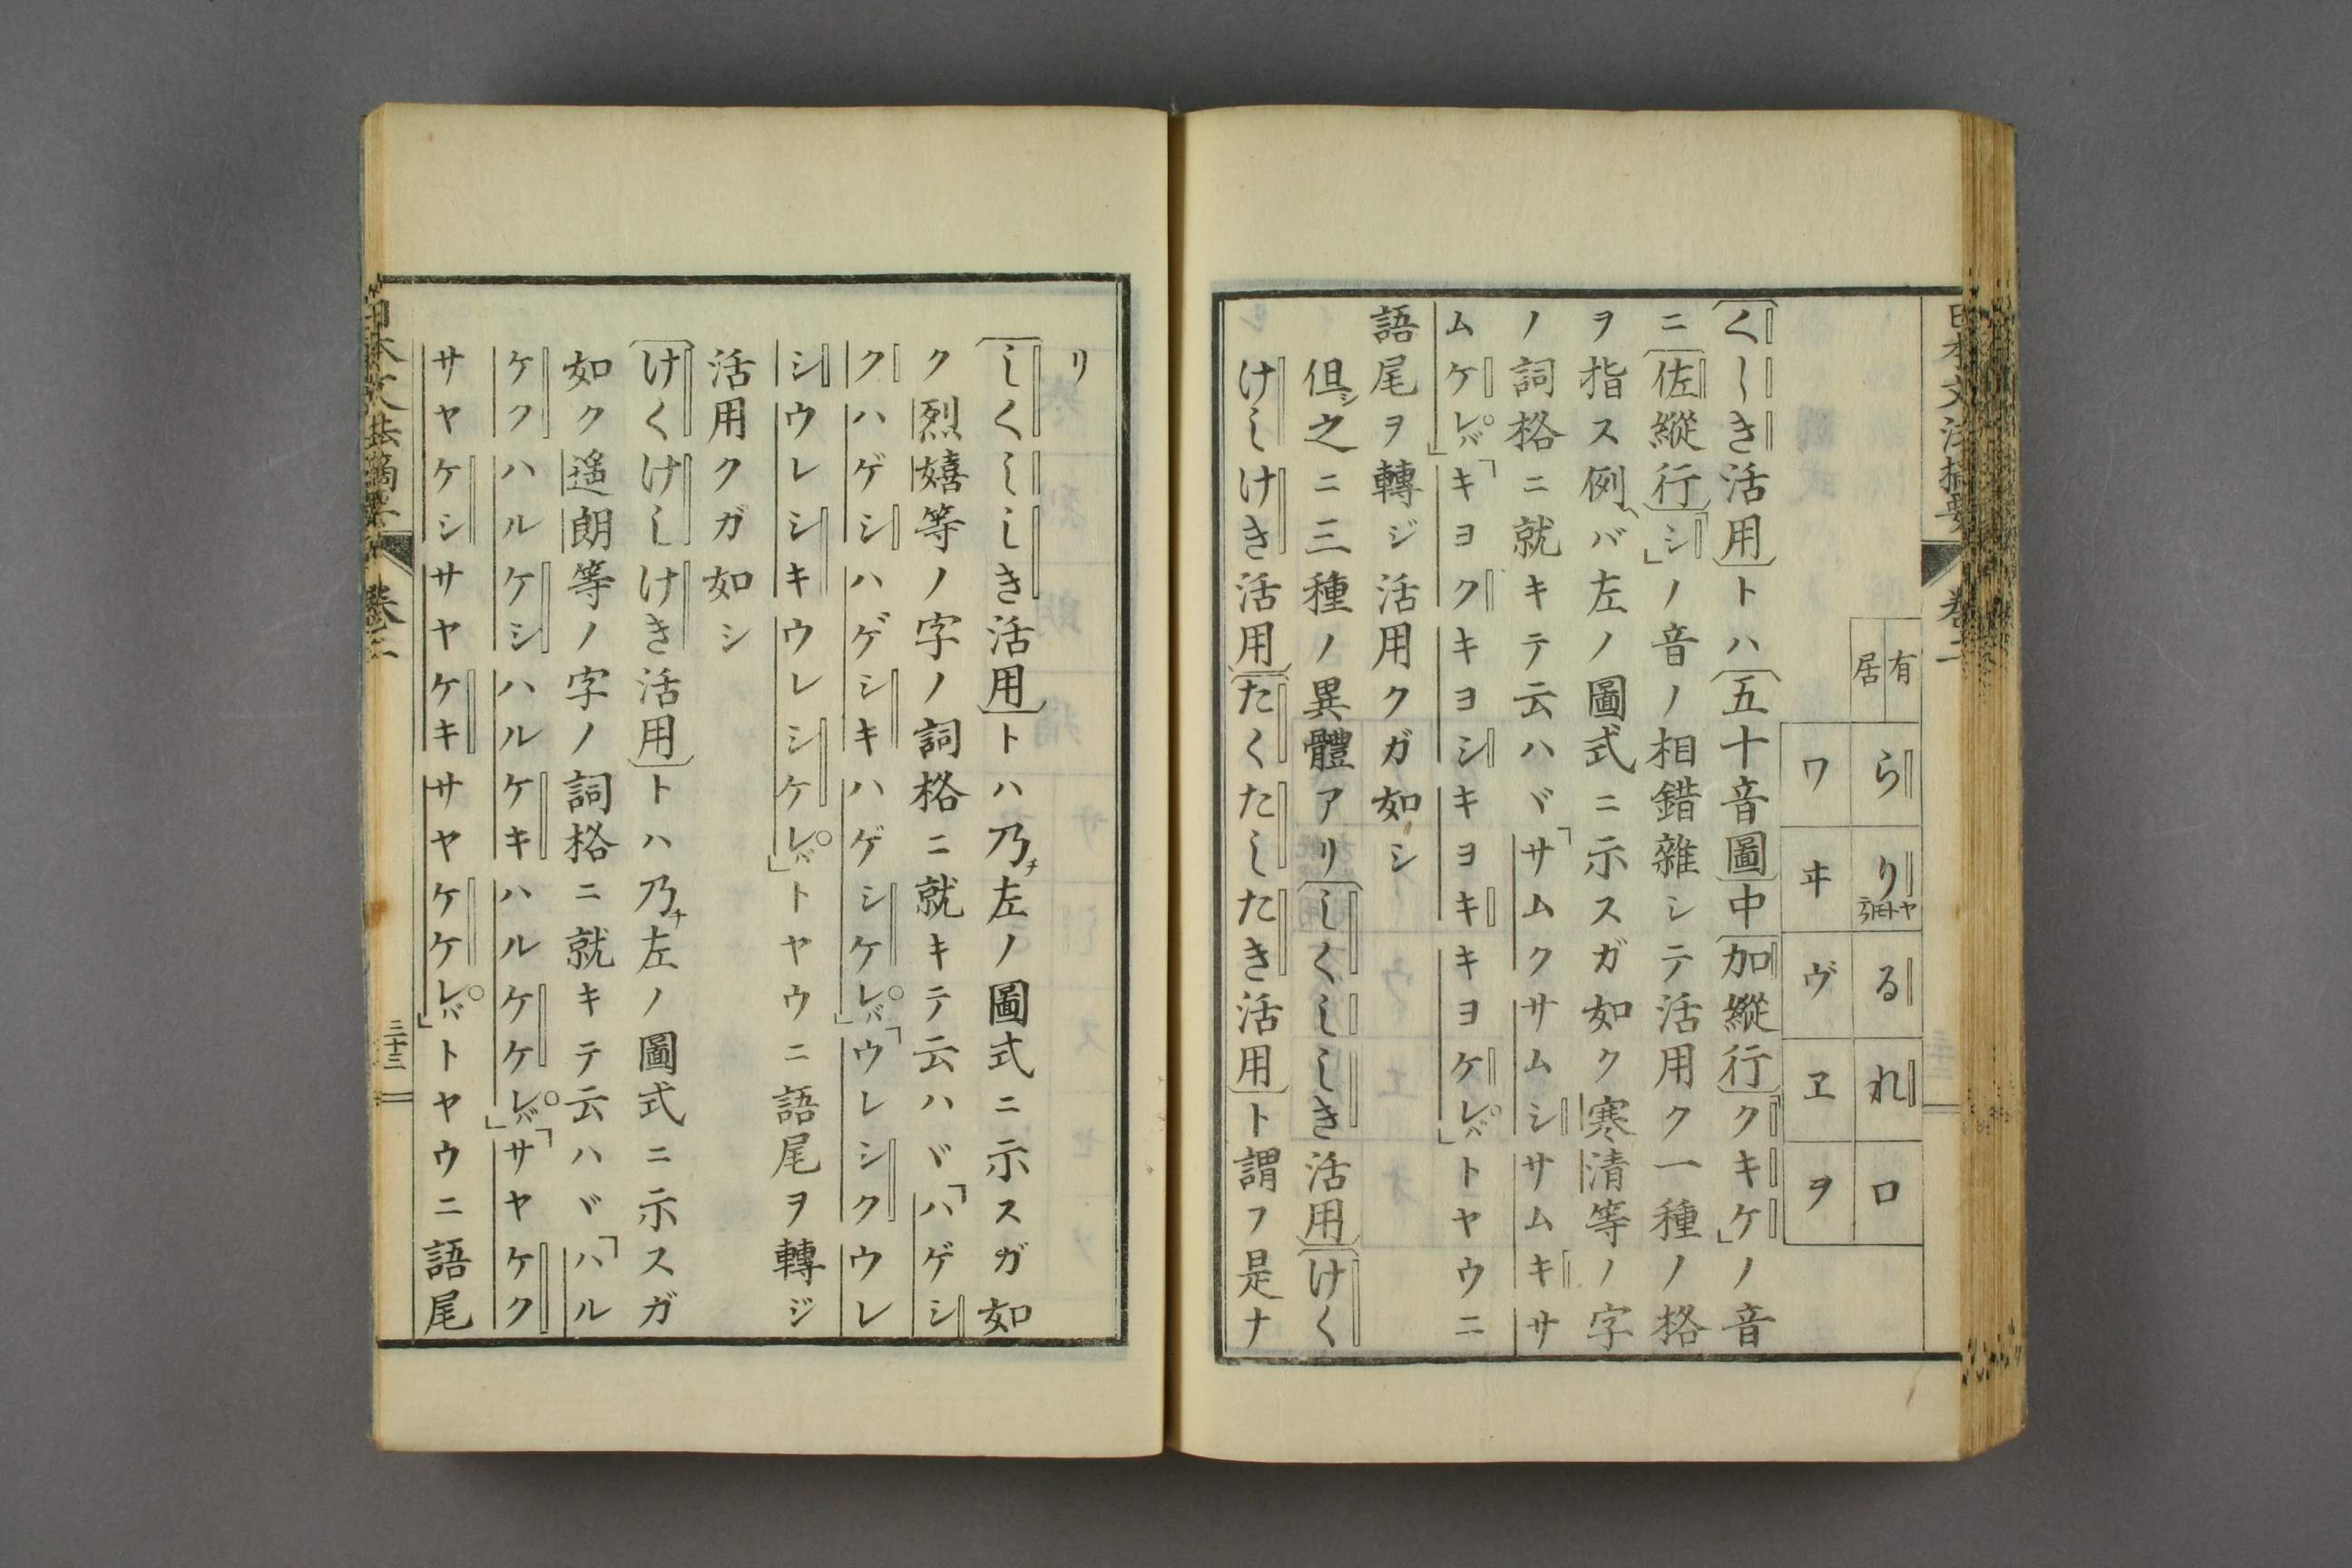 日本文法摘要 卷二
有 ら り る れ ロ
居 ワ ヰ ヴ ヱ ヲ
〔くしき活用〕トハ〔五十音圖〕中〔加縱行〕「クキケ」ノ音
ニ〔佐縱行〕「シ」ノ音ノ相錯雜シテ活用ク一種ノ格
ヲ指ス例ヘバ左ノ圖式ニ示スガ如ク寒清等ノ字
ノ詞格ニ就キテ云ハヾ「サムクサムシサムキサ
ムケレバ」「キヨクキヨシキヨキキヨケレバ」トヤウニ
語尾ヲ轉ジ活用クガ如シ
但シ之ニ三種ノ異體アリ〔しくししき活用〕〔けく
けしけき活用〕〔たくたしたき活用〕ト謂フ是ナ
リ
〔しくししき活用〕トハ乃チ左ノ圖式ニ示スガ如
ク烈嬉等ノ字ノ詞格ニ就キテ云ハヾ「ハゲシ
クハゲシハゲシキハゲシケレバ」「ウレシクウレ
シウレシキウレシケレバ」トヤウニ語尾ヲ轉ジ
活用クガ如シ
〔けくけしけき活用〕トハ乃チ左ノ圖式ニ示スガ
如ク遥朗等ノ字ノ詞格ニ就キテ云ハヾ「ハル
ケクハルケシハルケキハルケケレバ」「サヤケク
サヤケシサヤケキサヤケケレバ」トヤウニ語尾
日本文法摘要 卷二 三十三